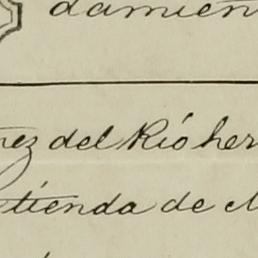 damien
nez del Río her
tienda de